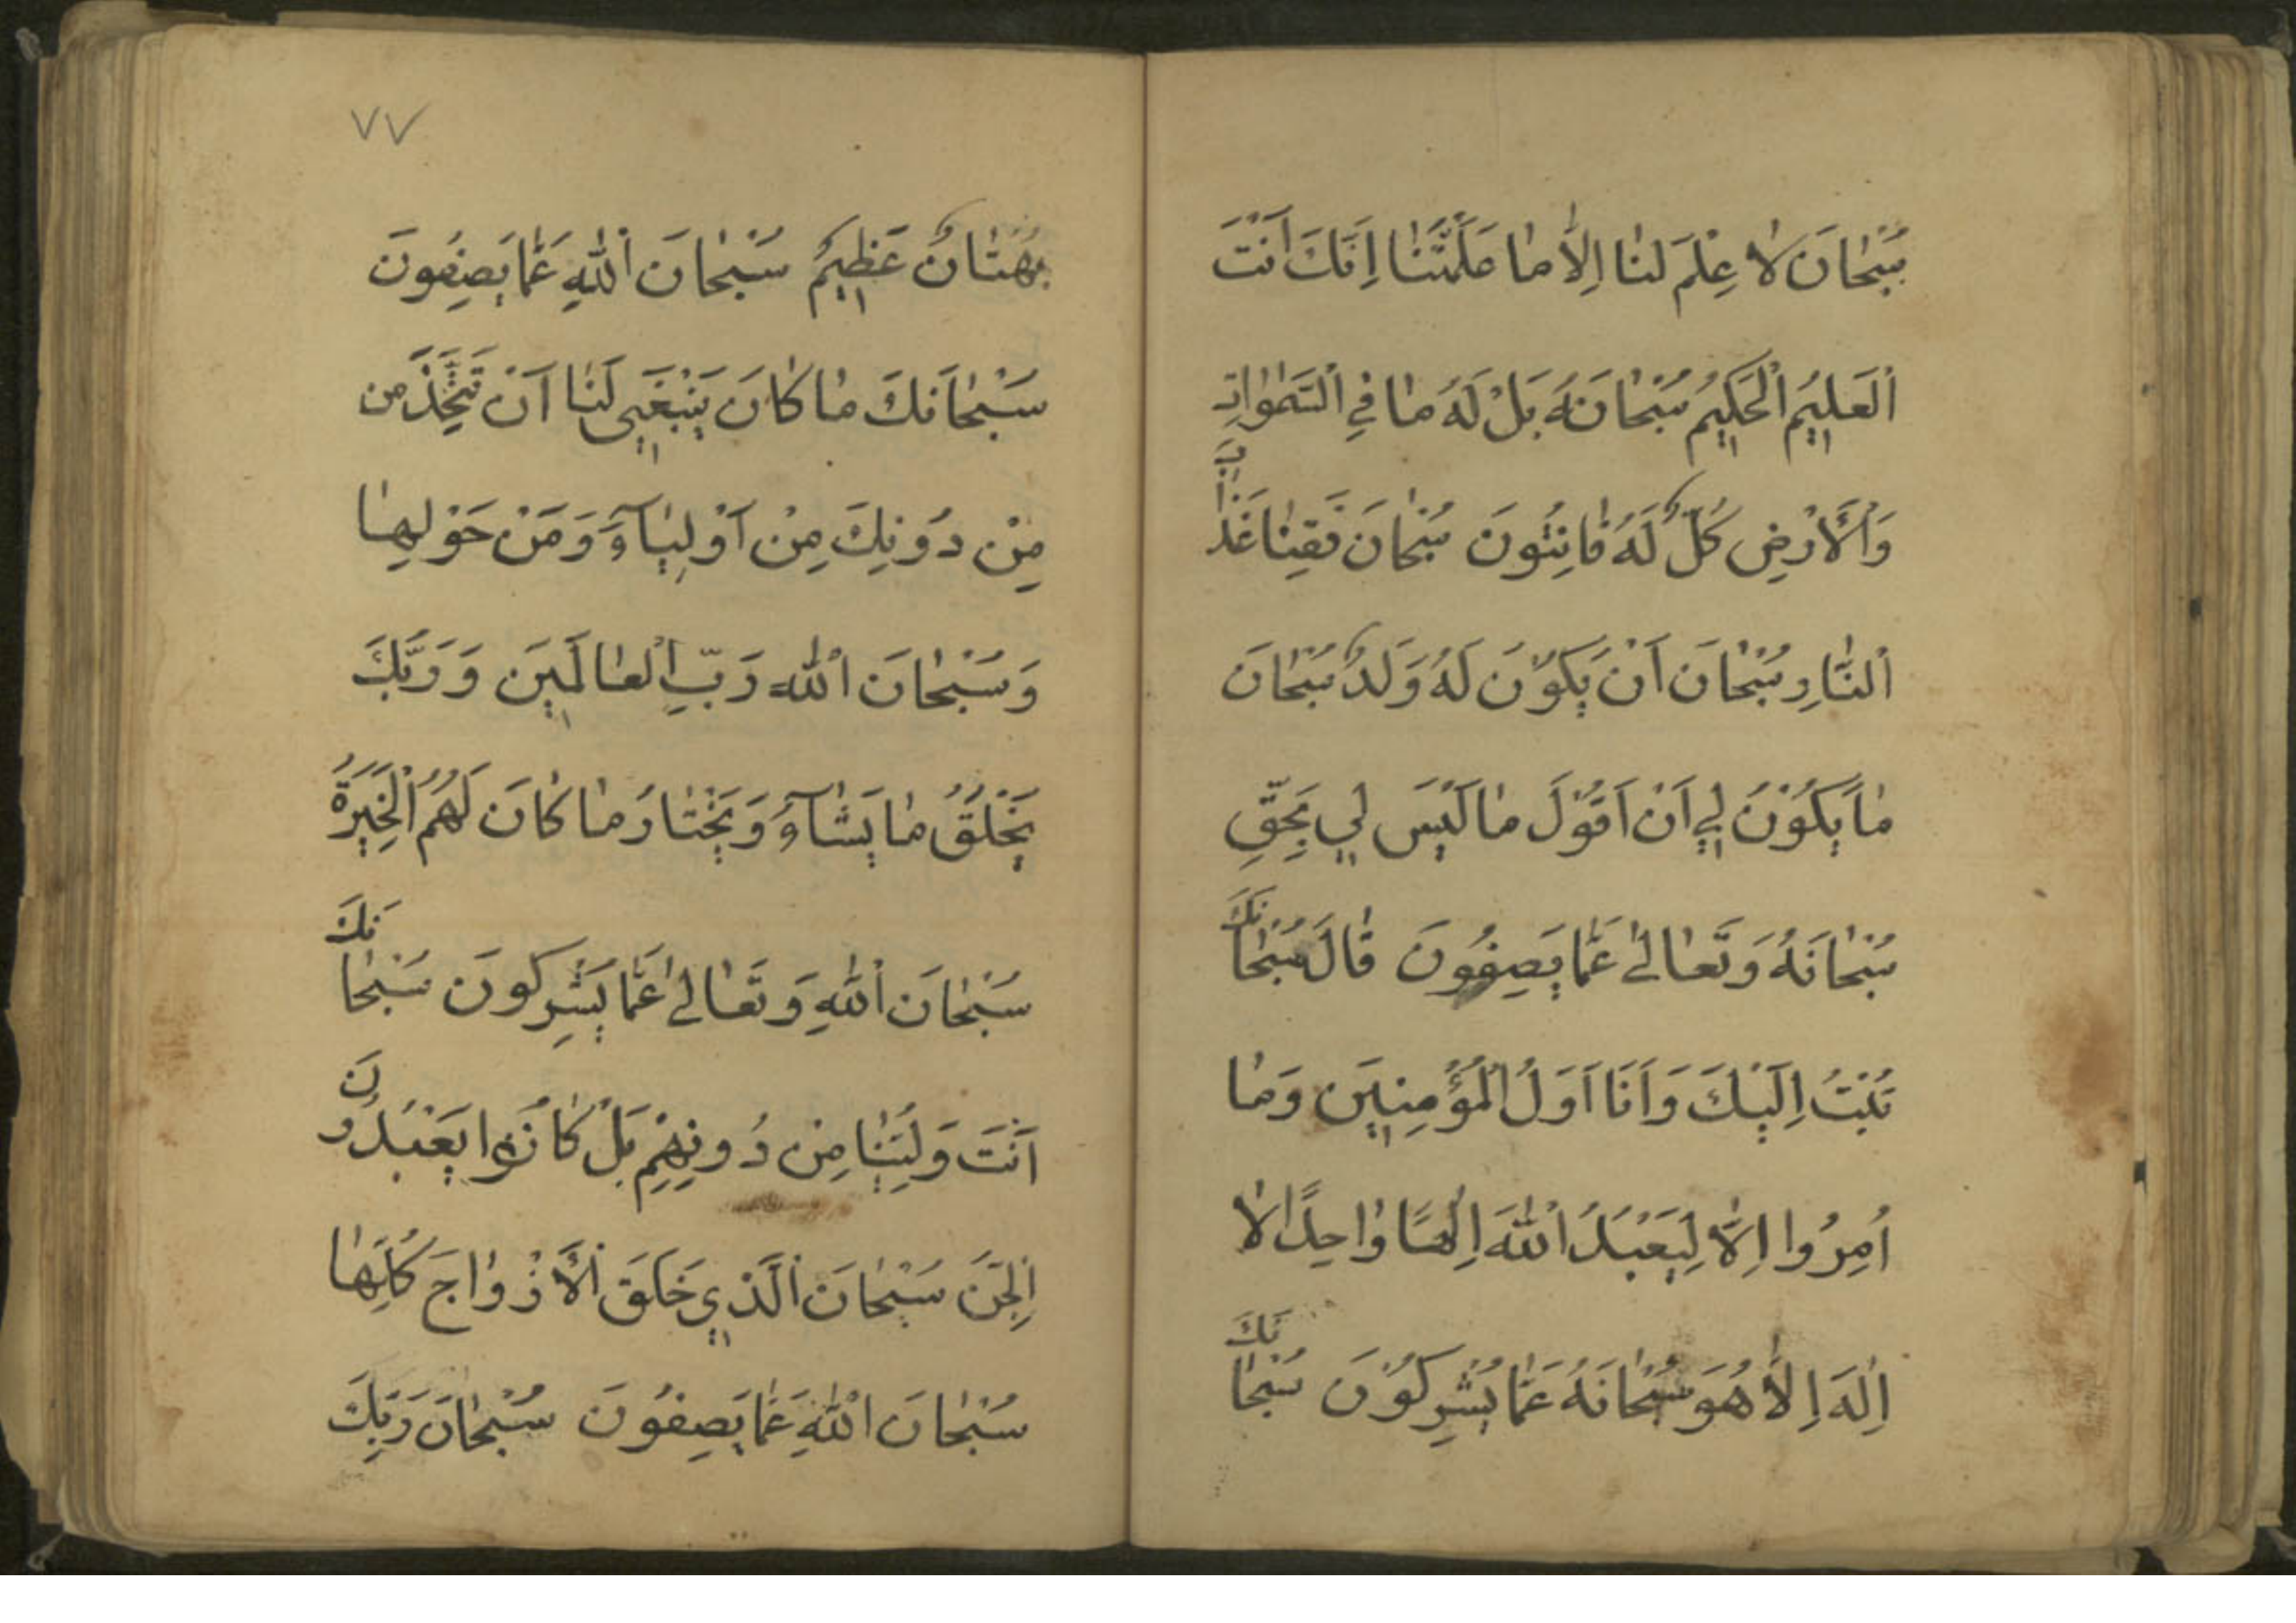 سُبْحَانَ لَا عِلْمَ لَنَا اِلَّا مَا عَلَّمْتَنَا اِنَّكَ اَنْتَ
الْعَلِيمُ الْحَكِيمُ سُبْحَانَهُ بَلْ لَهُ مَا فِي السَّمٰوَاتِ
وَالْاَرْضِ كُلٌّ لَهُ قَانِتُونَ سُبْحَانَ فَقِنَا عَذَابَ
النَّارِ سُبْحَانَ اَنْ يَكُوْنَ لَهُ وَلَدٌ سُبْحَانَ
مَا يَكُوْنُ لِي اَنْ اَقُوْلَ مَا لَيْسَ لِي بِحَقٍّ
سُبْحَانَهُ وَتَعَالٰى عَمَّا يَصِفُونَ قَالَ سُبْحَانَكَ
تُبْتُ اِلَيْكَ وَاَنَا اَوَلُ الْمُؤْمِنِينَ وَمَا
اُمِرُوا اِلَّا لِيَعْبُدُ اللّٰهَ اِلٰهًا وَاحِدًا لَا
اِلٰهَ اِلَّا هُوَ سُبْحَانَهُ عَمَّا يُشْرِكُوْنَ سُبْحَانَكَ
٧٧
بُهْتَانٌ عَظِيمٌ سُبْحَانَ اللّٰهِ عَمَّا يَصِفُونَ
سُبْحَانَكَ مَا كَانَ يَنْبَغِي لَنَا اَنْ نَتَّخِذَ من
مِنْ دُوْنِكَ مِنْ اَوْلِيَآءَ وَمَنْ حَوْلِهَا
وَسُبْحَانَ اللّٰه رَبِّ الْعَالَمِينَ وَرَبُّكَ
يَخْلُقُ مَا يَشَآءُ وَيَخْتَارُ مَا كَانَ لَهُمُ الْخِيَرَةُ
سُبْحَانَ اللّٰهِ وَتَعَالٰى عَمَّا يُشْرِكُونَ سُبْحَانَكَ
اَنْتَ وَلِيُّنَا مِنْ دُونِهِمْ بَلْ كَانُوا يَعْبُدُونَ
الْجِنَّ سُبْحَانَ الَّذِي خَلَقَ الْاَزْوَاجَ كُلَّهَا
سُبْحَانَ اللّٰهِ عَمَّا يَصِفُونَ سُبْحَانَ رَبِّكَ